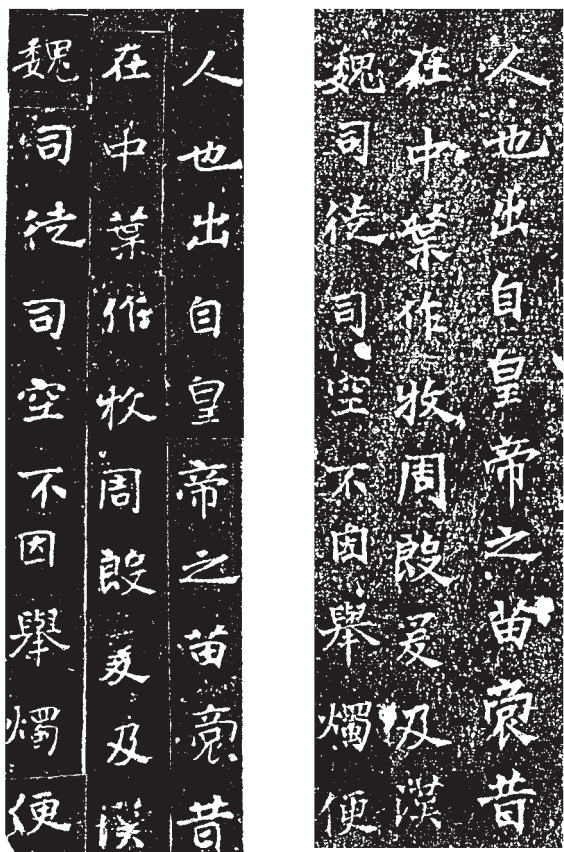 人也出自皇帝之苗裔昔
在中葉作牧周殷爰及漢
魏司徒司空不因舉燭便
人也出自皇帝之苗裔昔
在中葉作牧周殷爰及漢
魏司徒司空不因舉燭便